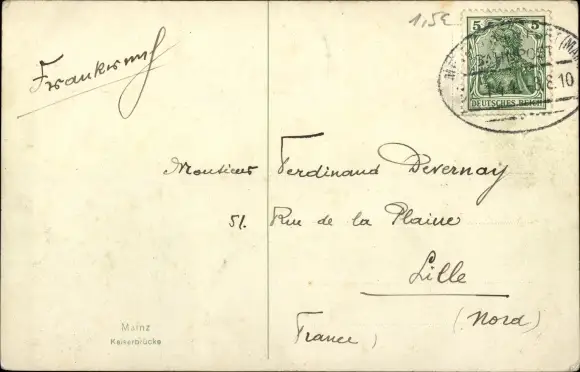 1,5€
5 5
DEUTSCHES REICH
8.10
Monsieur Ferdinand Devernay
51. Rue de la Plaine
Lille
(Nord)
France)
Mainz
Kaiserbrücke